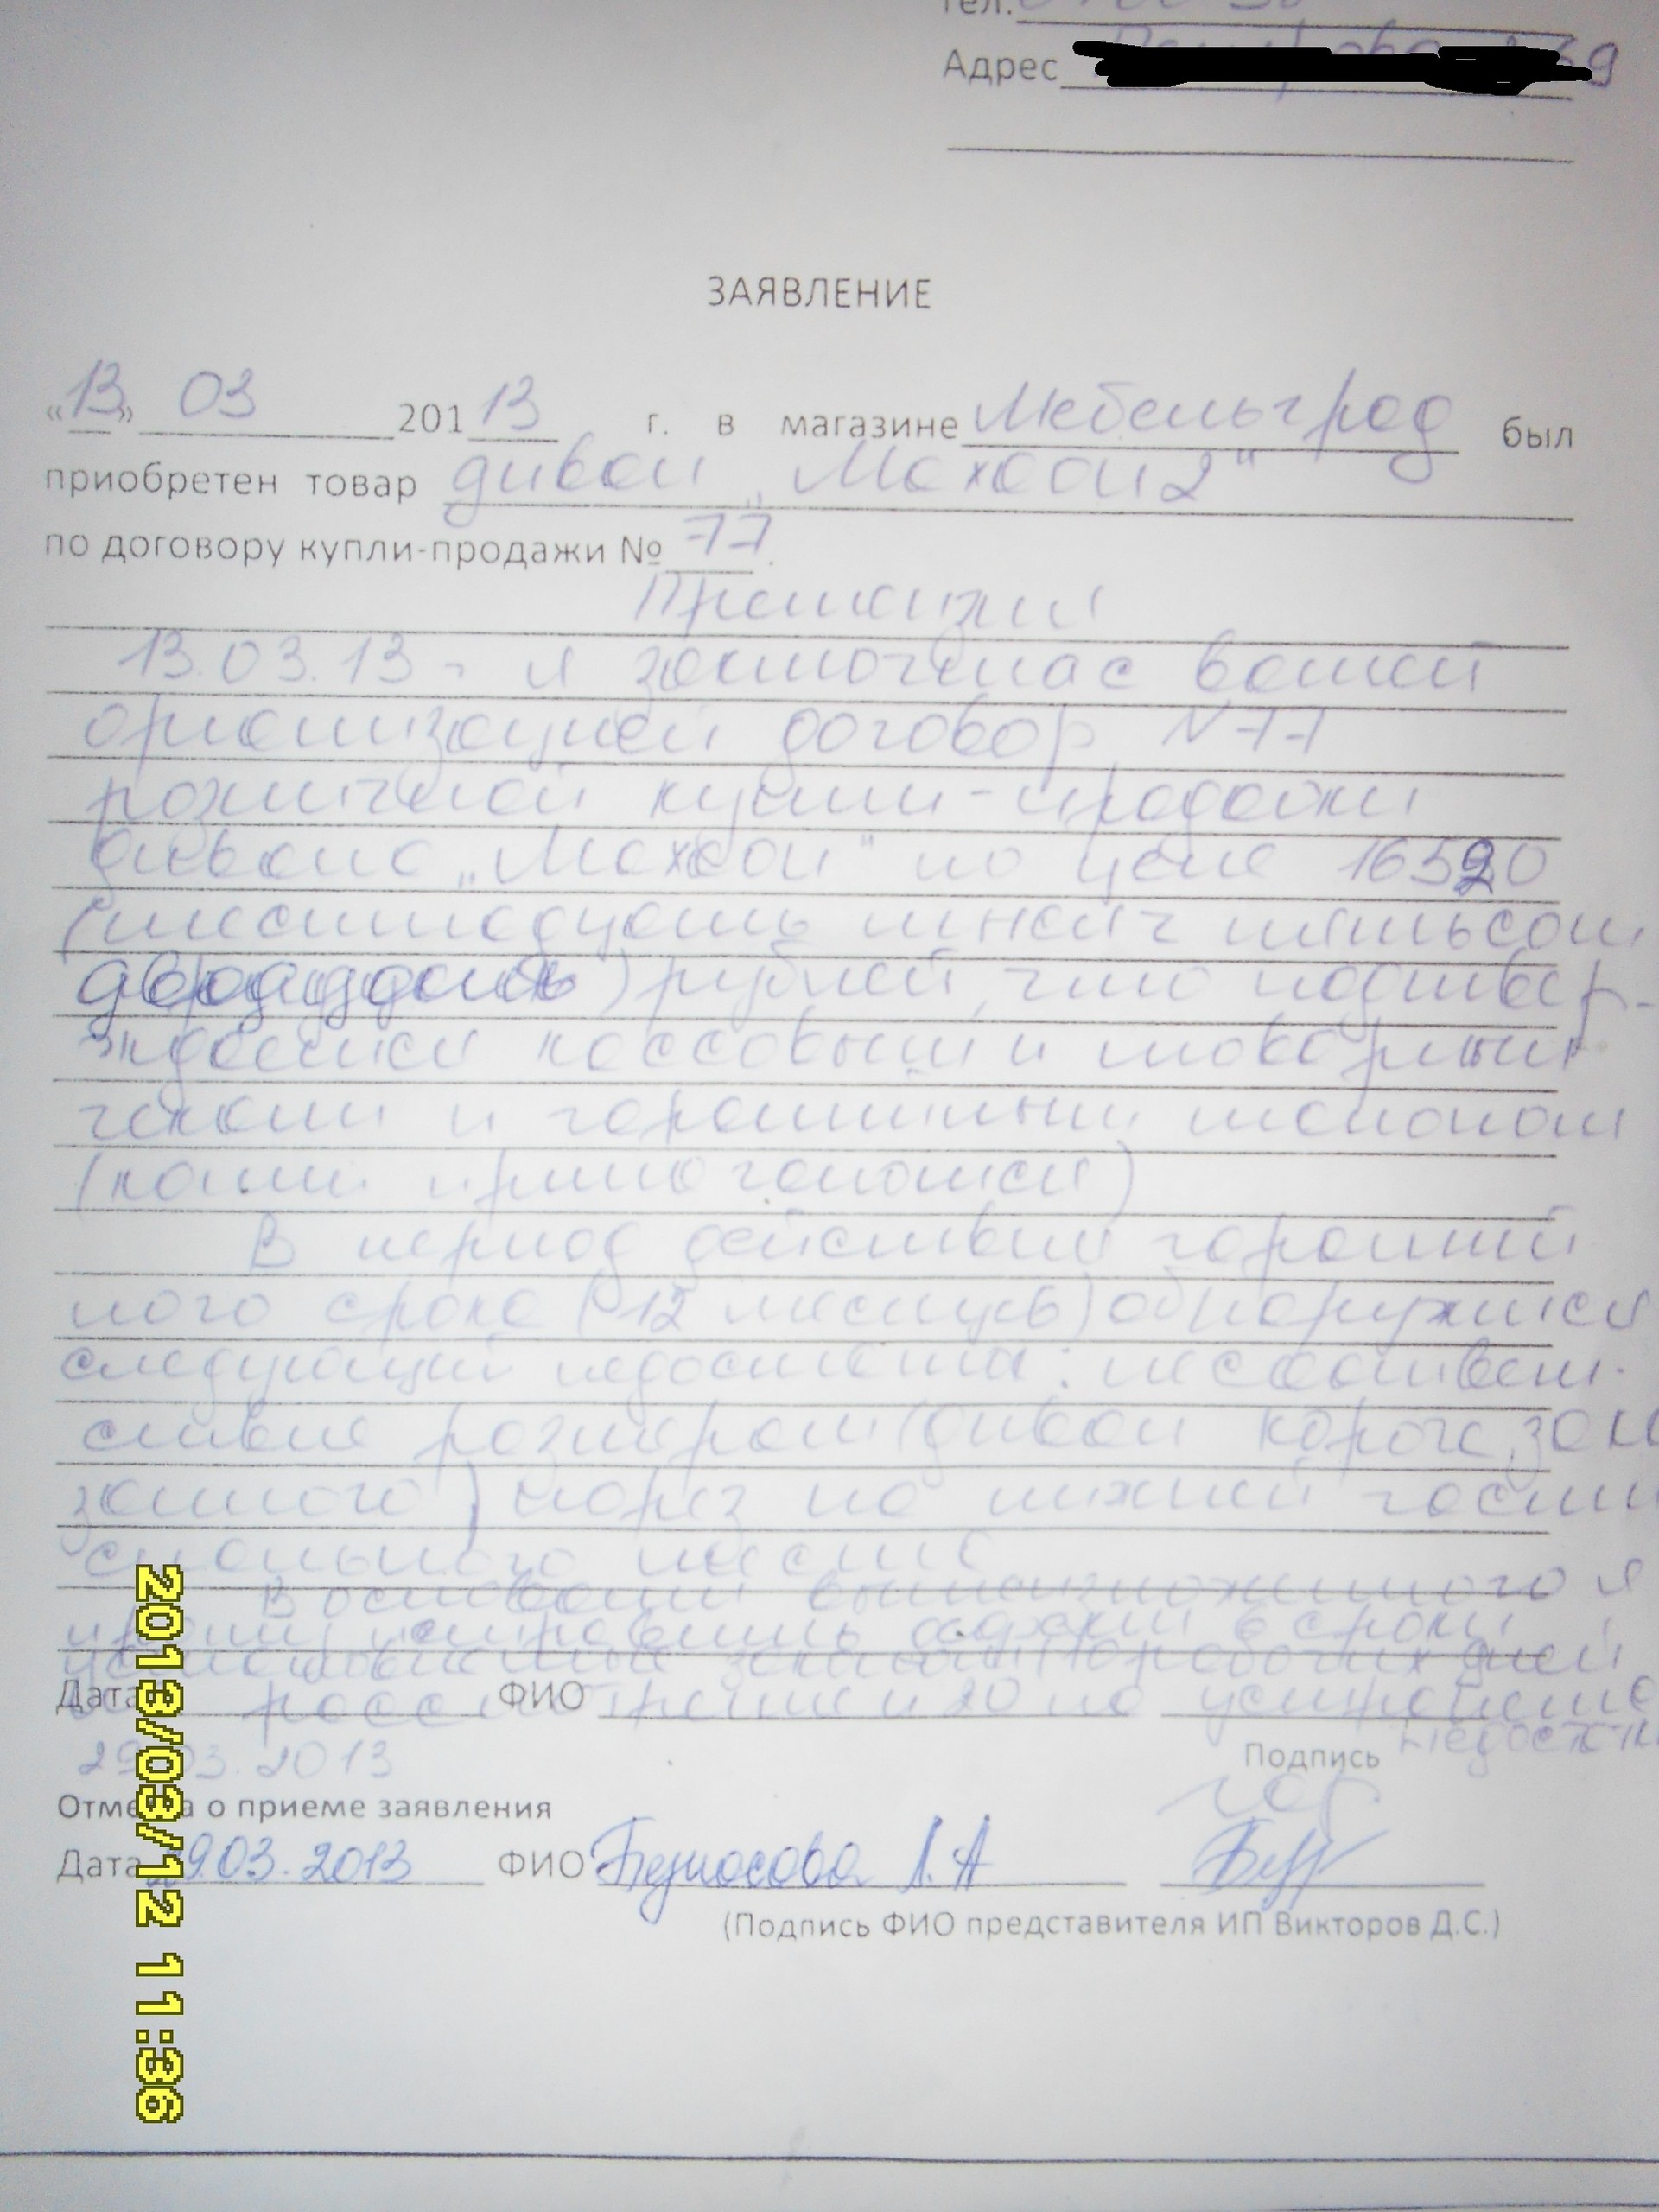 тел.
Адрес 39
ЗАЯВЛЕНИЕ
«13» 03 201 13 г. в магазине Мебельград был
приобретен товар диван „Махаон 2"
по договору купли-продажи № 77.
Претензия
13.03.13 - я заключила с вашей
организацией договор N 77
розничной купли-продажи
дивана „Махаон" по цене 16520
(шестнадцать тысяч пятьсот
двадцать) рублей, что подтвер-
ждается кассовым и товарным
чеком и гарантийным талоном
(копии прилагаются)
В период действия гарантий
ного срока (12 месяцев) обнаружился
следующий недостаток: несоответ-
ствие размерам (диван короче, зака
занного) порез на нижней части
спального места
В основании вышеизложенного я
прошу исправить в сроки
установленные законом (10 рабочих дней
рассмотрения и 20 на устранение
Дата ФИО
недостатк
29.03.2013
Подпись
Отметка о приеме заявления
Дата 29.03.2013 ФИО Л.А
(Подпись ФИО представителя ИП Викторов Д.С.)
2013/03/12 11:36